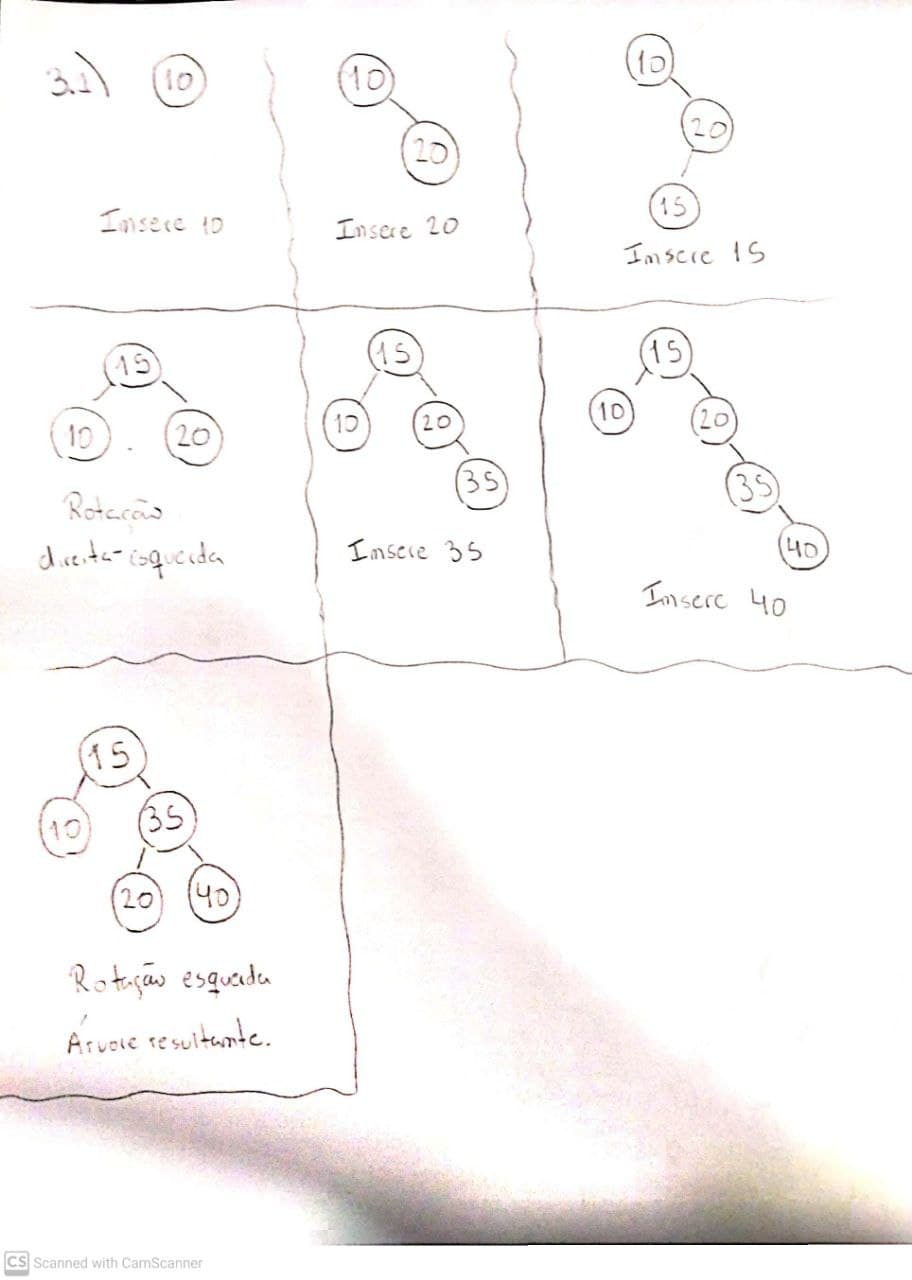 3.1)
10
Insere 10
10
20
Insere 20
10
20
15
Insere 15
15
10 20
Rotação
direita-esquerda
15
10 20
35
Insere 35
15
10 20
35
40
Insere 40
15
10 35
20 40
Rotação esquerda
Árvore resultante.
CS Scanned with CamScanner